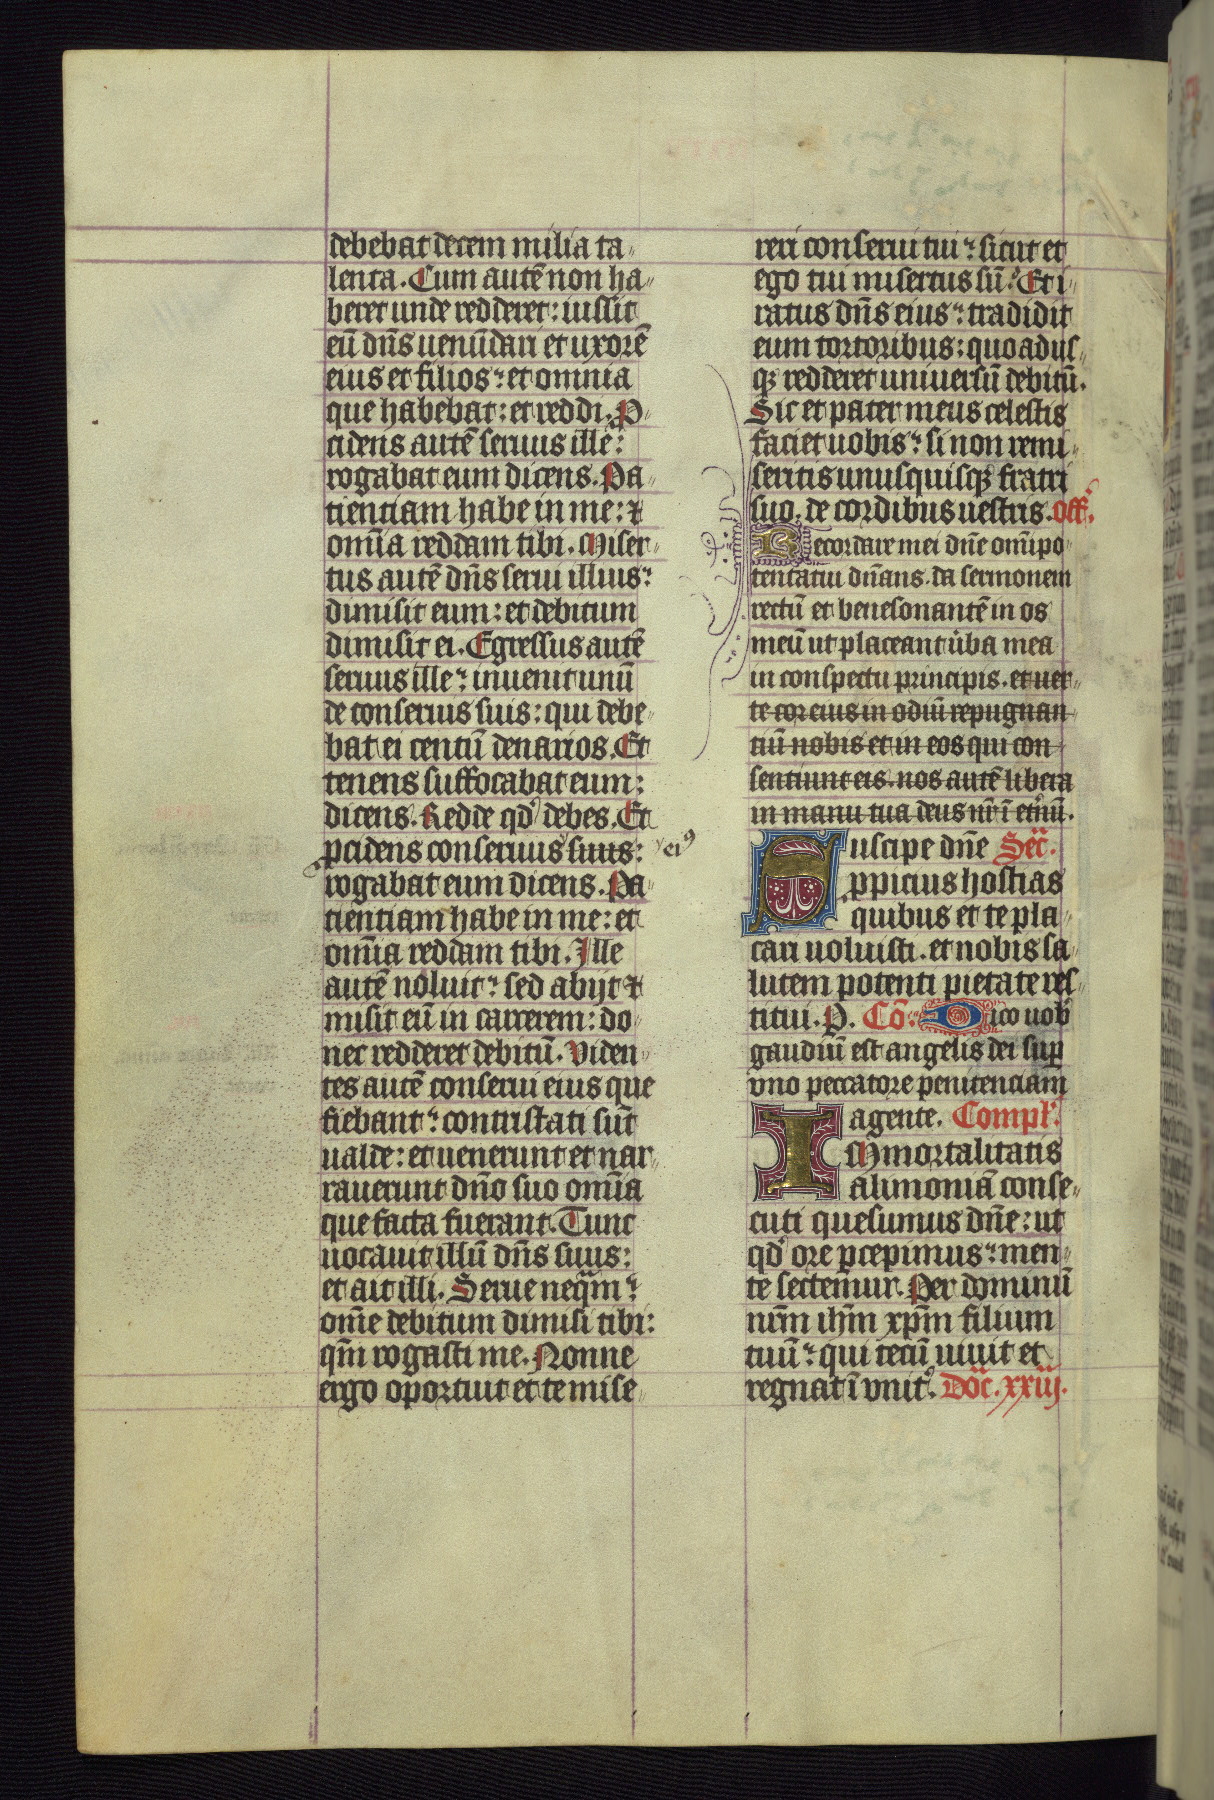 debebat decem milia ta-
lenta. Cum autē non ha-
beret unde redderet: iussit
eū dn̄s uenūdari et uxorē
eius et filios: et omnia
que habebat: et reddi. P-
cidens autē seruus ille:
rogabat eum dicens. Pa-
tientiam habe in me: ⁊
om̄ia reddam tibi. Miser-
tus autē dn̄s serui illius:
dimisit eum: et debitum
dimisit ei. Egressus autē
seruus ille: inuenit unū
de conseruis suis: qui debe-
bat ei centū denarios. Et
tenens suffocabat eum:
dicens. Redde qd̛ debes. Et
pcidens conseruus suus: eiꝰ
rogabat eum dicens. Pa-
tientiam habe in me: et
om̄ia reddam tibi. Ille
autē noluit: sed abijt ⁊
misit eū in carcerem: do-
nec redderet debitū. Viden-
tes autē conserui eius que
fiebant: contristati sūt
ualde: et uenerunt et nar-
rauerunt dn̄o suo om̄ia
que facta fuerant. Tunc
uocauit illū dn̄s suus:
et ait illi. Serue neqm:
om̄e debitum dimisi tibi:
qm̄ rogasti me. Nonne
ergo oportuit et te mise-
reri conserui tui: sicut et
ego tui misertus sū: Et i-
ratus dn̄s eius: tradidit
eum tortoribus: quoadus-
qꝫ redderet uniuersū debitū.
Sic et pater meus celestis
faciet uobis: si non remi-
seritis unusquisqꝫ fratri
suo. de cordibus uestris. Off.
Recordare mei dn̄e om̄ipo
tentatui dn̄ans. da sermonem
rectū et benesonantē in os
meū ut placeant ūba mea
in conspectu principis. et uer-
te cor eius in odiū repugnan-
tiū nobis et in eos qui con-
sentiunt eis. nos autē libera
in manu tua deus nr̄ ī et̄nū.
Suscipe dn̄e Sec̄.
ppicius hostias
quibus et te pla-
cari uoluisti. et nobis sa-
lutem potenti pietate res-
titui. P. Cō. Dico uob̛
gaudiū est angelis dei sup
vno peccatore penitenciam
agente. Compl̄.
IMmortalitatis
alimoniā conse-
cuti quesumus dn̄e: ut
qd̛ ore pcepimus: men-
te sectemur. Per dominū
nr̄m ih̄m xp̄m filium
tuū: qui tecū uiuit et
regnat ī vnit̛. Dōc. xxiij.